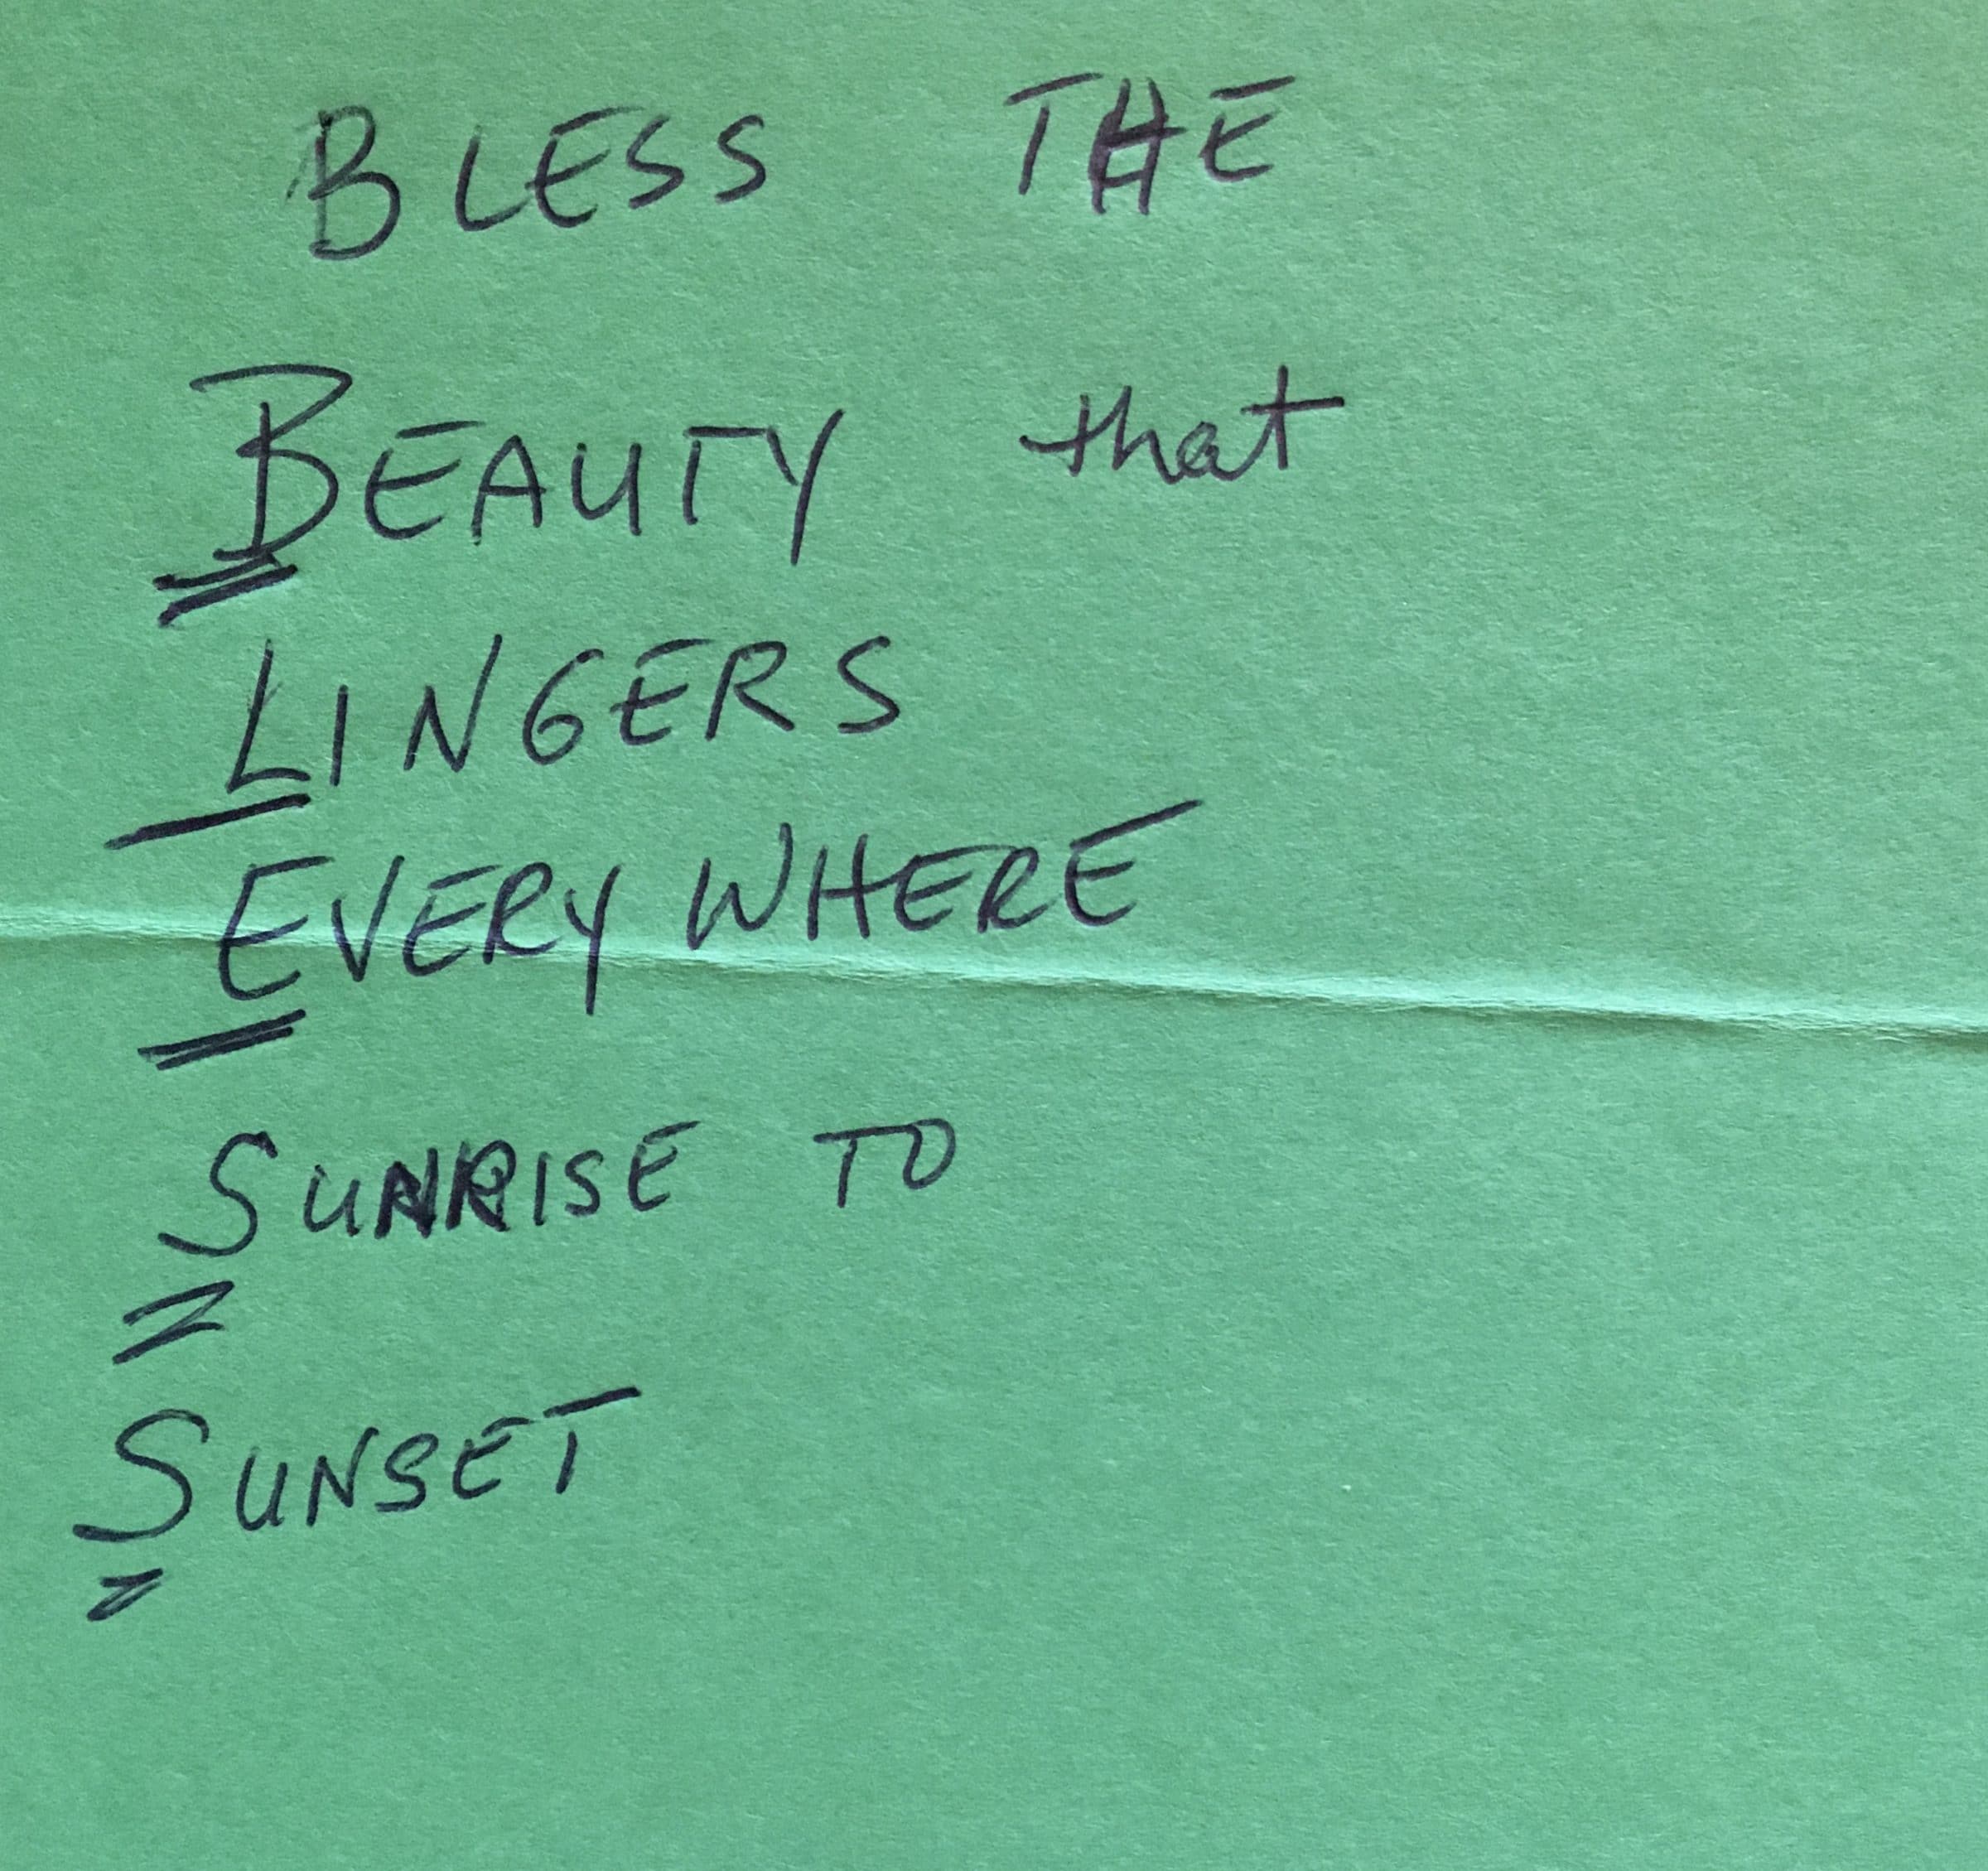 BLESS THE
BEAUTY that
LINGERS
EVERY WHERE
SUNRISE TO
SUNSET